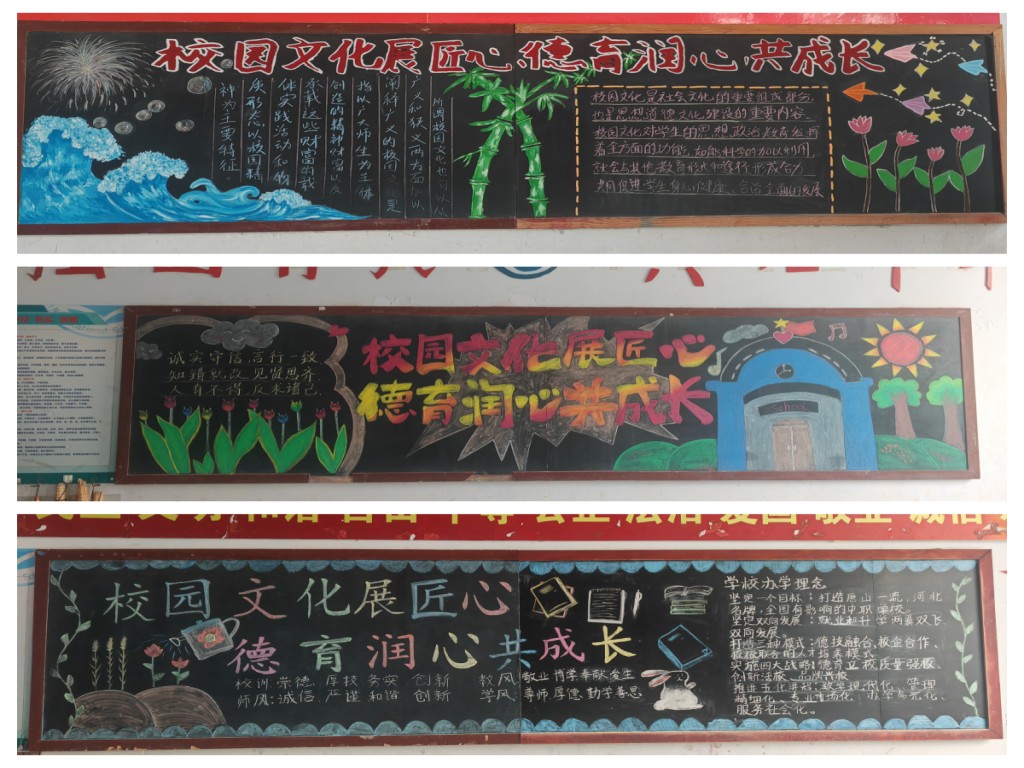 校园文化展匠心,德育润心共成长
所谓校园文化也可以从
广义和狭义两方面以
阐释广义的校园
指以广大师生为主体
创造的精神财富以及
承载这些财富的载
体实践活动和物
质形态以校园精
神为主要特征。
校园文化是社会文化的重要组成部分
也是思想道德文化建设的重要内容。
校园文化对学生的思想政治
着全方面的功能,如能科学的加以利用
社会与其他教育形式和
共同促进学生身心健康、
校园文化展匠心
德育润心共成长
诚实守信,言行一致
知错就改,见贤思齐
人有不得,反求诸己
School
校园文化展匠心
德育润心共成长
校训:崇德 厚技 务实 创新 教风:敬业 博学 奉献 爱生
师风:诚信 严谨 和谐 创新 学风:尊师 厚德 勤学 善思
学校办学理念
坚定一个目标:打造唐山一流,河北
名牌,全国有影响的中职学校。
坚定双向发展:就业和升学两翼双飞
双向发展。
打造三种模式:德技融合、校企合作、
实施四大战略:德育立校、质量强校、
创新活校、品牌兴校
推进五化进程:教学现代化、管理
精细化、专业市场化、办学多元化、
服务社会化。